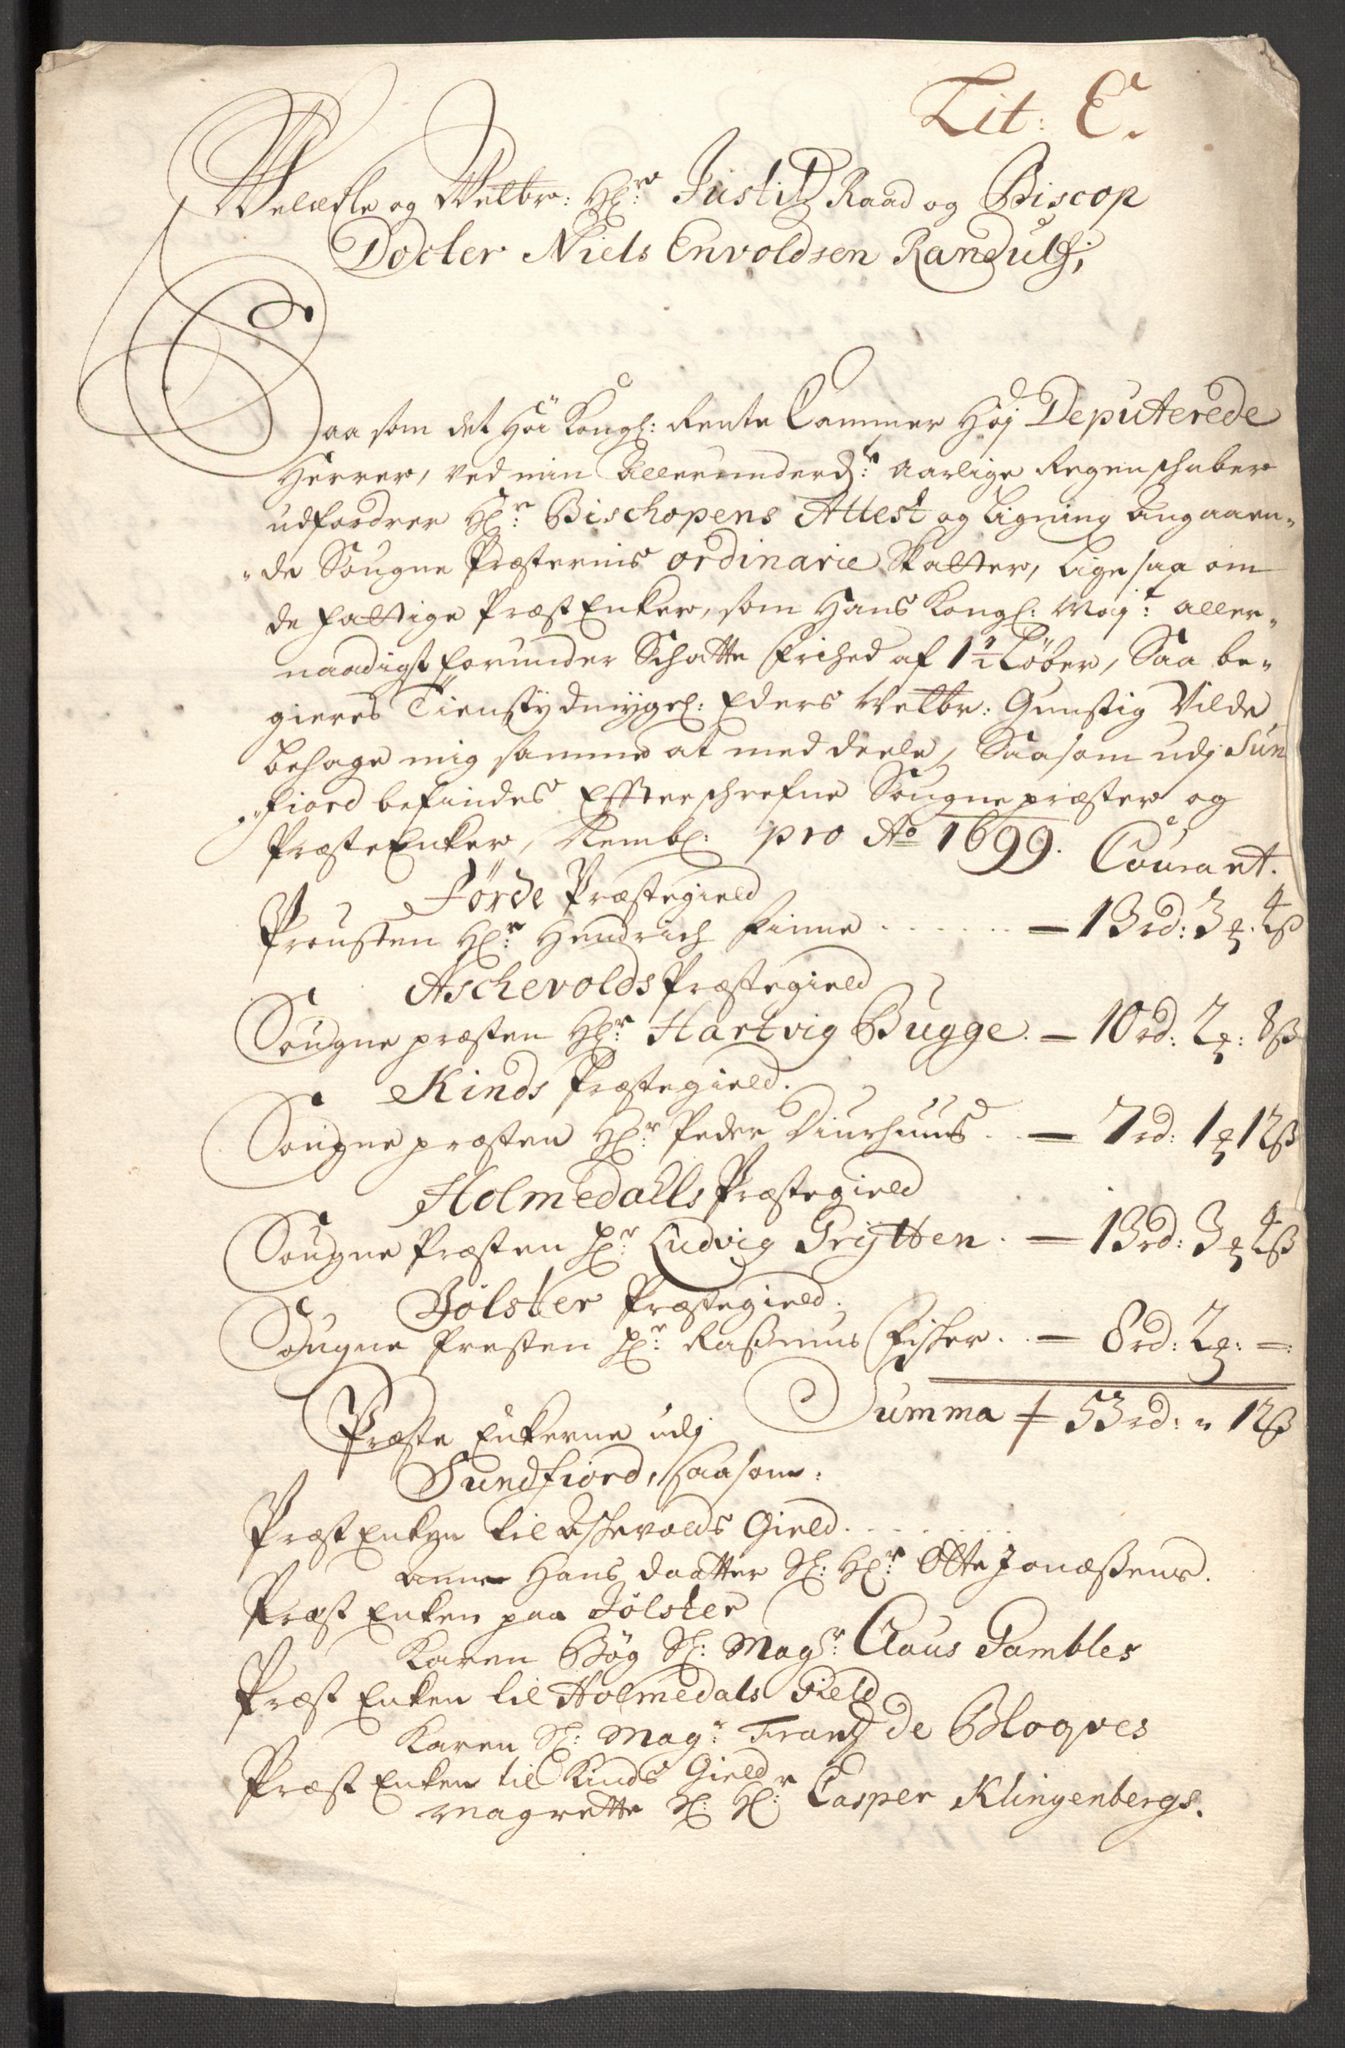 Lit: E.
Welædle og Welbr: Hr: Justitz Raad og Biscop
Docter Niels Envoldsen Randulf;
Saasom det Höi Kongl: Rente Cammer Höj Deputerede
Herrer, ved min Allerunderd: Aarlige Regenschaber
udfordrer Hr: Bischopens Attest og Ligning Angaaen-
de Sougne Præsternis ordinarie Skatter, lige saa om
de fattige Præst Enker, som Hans Kongl: Maj:t aller-
naadigst forunder Schatte frihed af 1½ Löber, Saa be-
gieres Tienstydmygel: Eders Welbr: Gunstig Vilde
behage mig samme at meddeele, Saasom udj Sun
fiord befindes Effterschrefne Sougnepræster og
Præste Enker, Nembl: pro Ao 1699. Courant.
Förde Præstegield
Prousten Hr: Hendrich Finne - 13rd: 3 4ß
Aschevolds Præstegield
Sougne præsten Hr: Hartvig Bugge. - 10rd: 2 8ß
Kinds Præstegield.
Sougne præsten Hr: Peder Diurhuus. - 7rd: 1 12ß
Holmedalls Præstegield
Sougne Præsten Hr: Ludvig Prytten. - 13rd: 3 4ß
Jölster Præstegield.
Sougne Presten Hr: Rasmus Fisker. - 8rd: 2: -
Summa 53rd: " 12ß
Præste Enkerne udj
Sundfiord, saasom:
Præst Enken til Aschevolds Gield
Anne Hans daatter Sl: Hr: Otte Jonæßens.
Præst Enken paa Jölster
Karen Bög Sl: Magr: Claus Gambles
Præst Enken til Holmedals Gield
Karen Sl: Magr: Frantz de Bloqves
Præst Enken til Kinds Gield
Magrette Sl: Hr: Casper Klingenbergs.